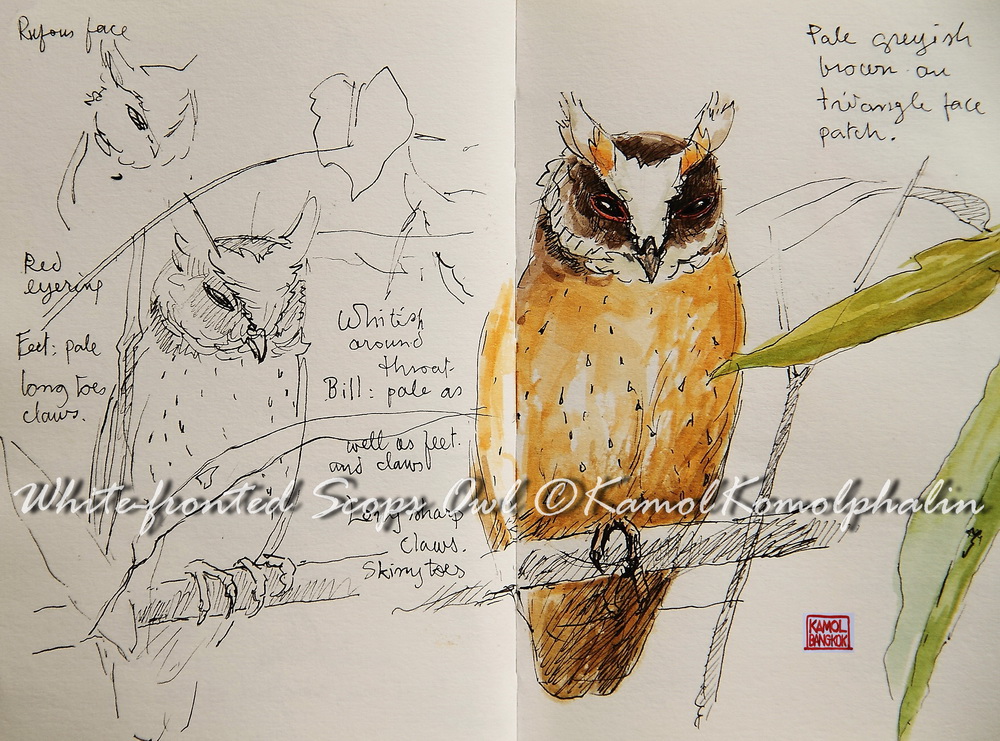 Rufous face
Red
eyering
Feet: pale
long toes
claws.
Whitish
around
throat
Bill: pale as
well as feet.
and claws
Long sharp
claws.
Skinny toes
Pale greyish
brown on
triangle face
patch.
White-fronted Scops Owl ©KamolKomolphalin
KAMOL
BANGKOK